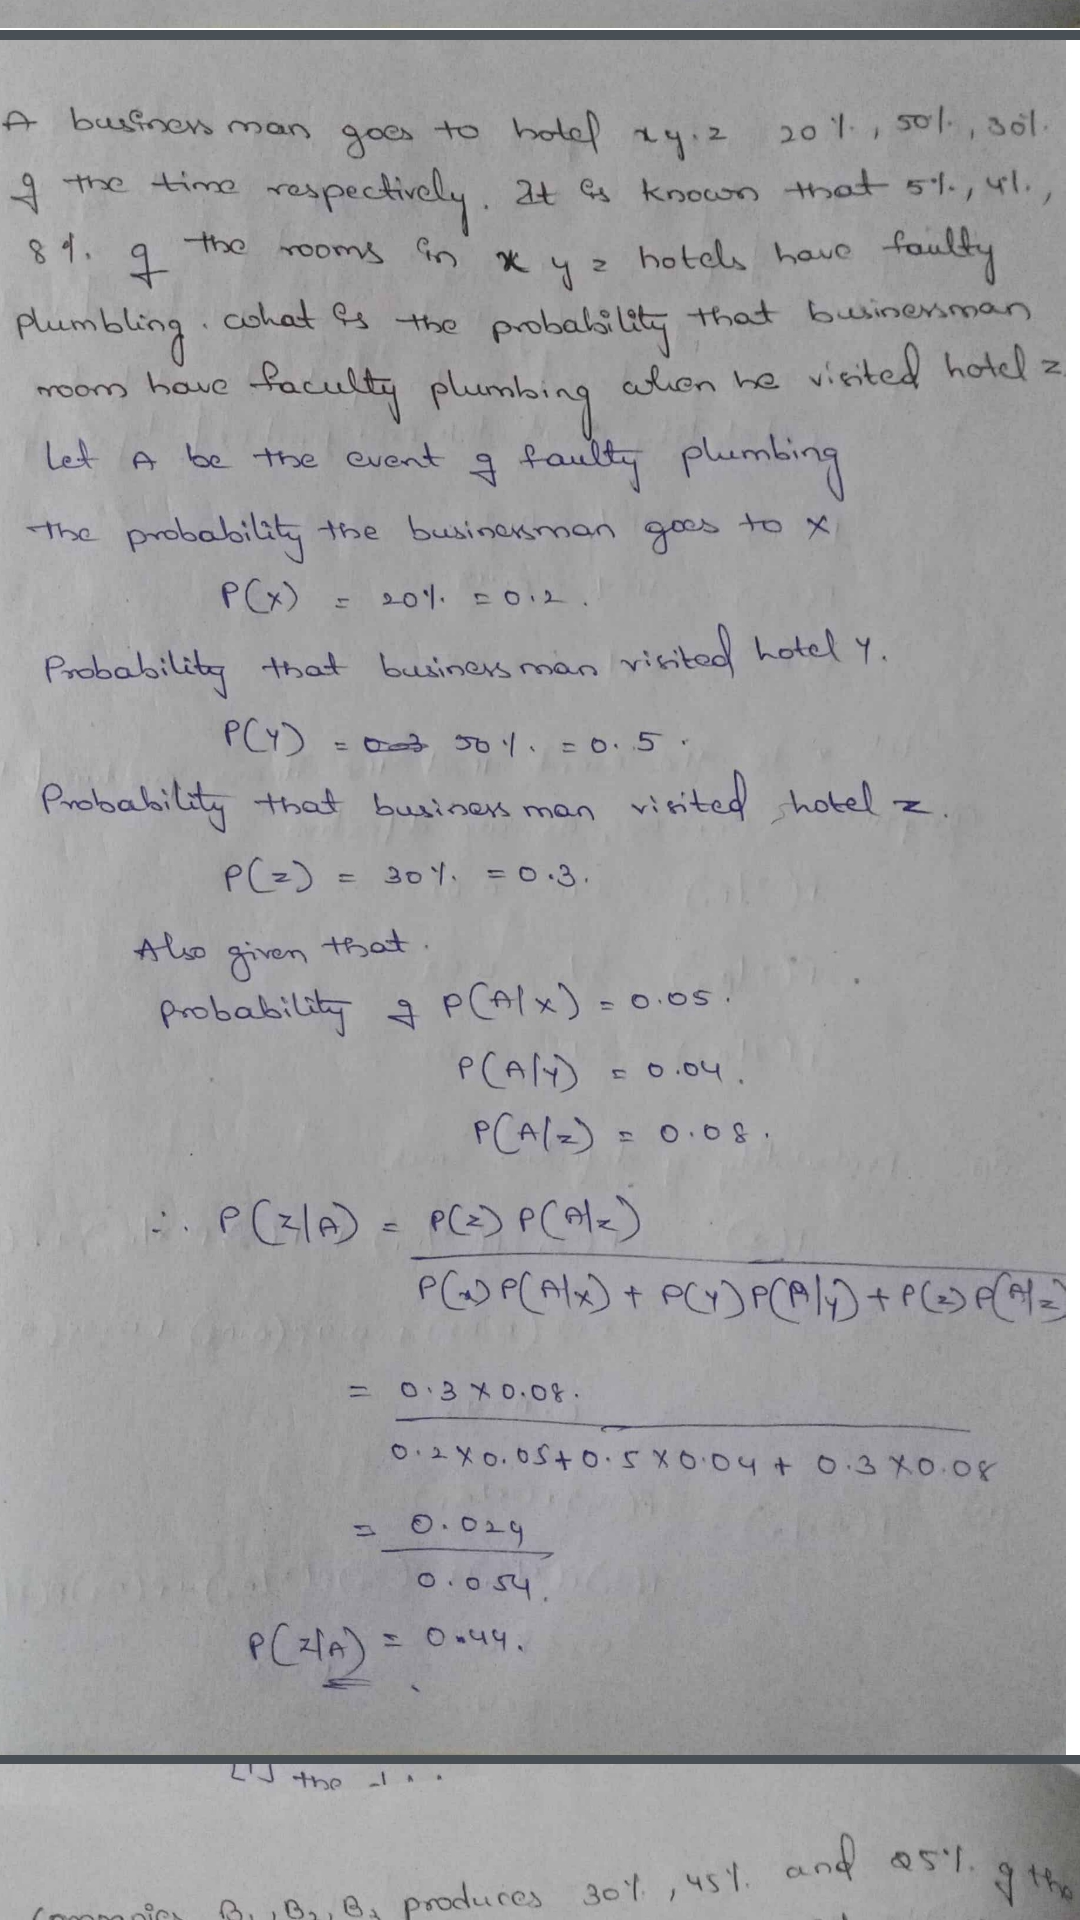 A business man goes to hotel x y. z 20%, 50%, 30%.
of the time respectively. It is known that 5%, 4%,
8%. of the rooms in x y z hotels have faulty
plumbling. what is the probability that businessman
room have faculty plumbing when he visited hotel z
Let A be the event of faulty plumbing
The probability the businessman goes to X
P(X) = 20% = 0.2.
Probability that business man visited hotel Y.
P(Y) = 50%. = 0.5.
Probability that business man visited hotel z.
P(z) = 30%. = 0.3.
Also given that.
Probability of P(A/X) = 0.05.
P(A/Y) = 0.04.
P(A/z) = 0.08.
∴ P(z/A) = P(z) P(A/z)
P(x) P(A/x) + P(Y) P(A/y) + P(z) P(A/z)
= 0.3 × 0.08.
0.2 × 0.05 + 0.5 × 0.04 + 0.3 × 0.08
= 0.024
0.054.
P(z/A) = 0.44.
the
B1, B2, B3 produces 30%, 45% and 25% of the